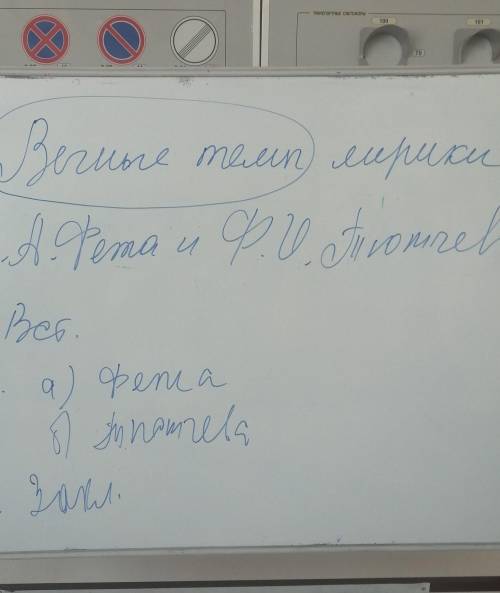 100
101
79
Вечные темы лирики
А. Фета и Ф. И. Тютчев
Вст.
а) Фета
б) Тютчева
Закл.